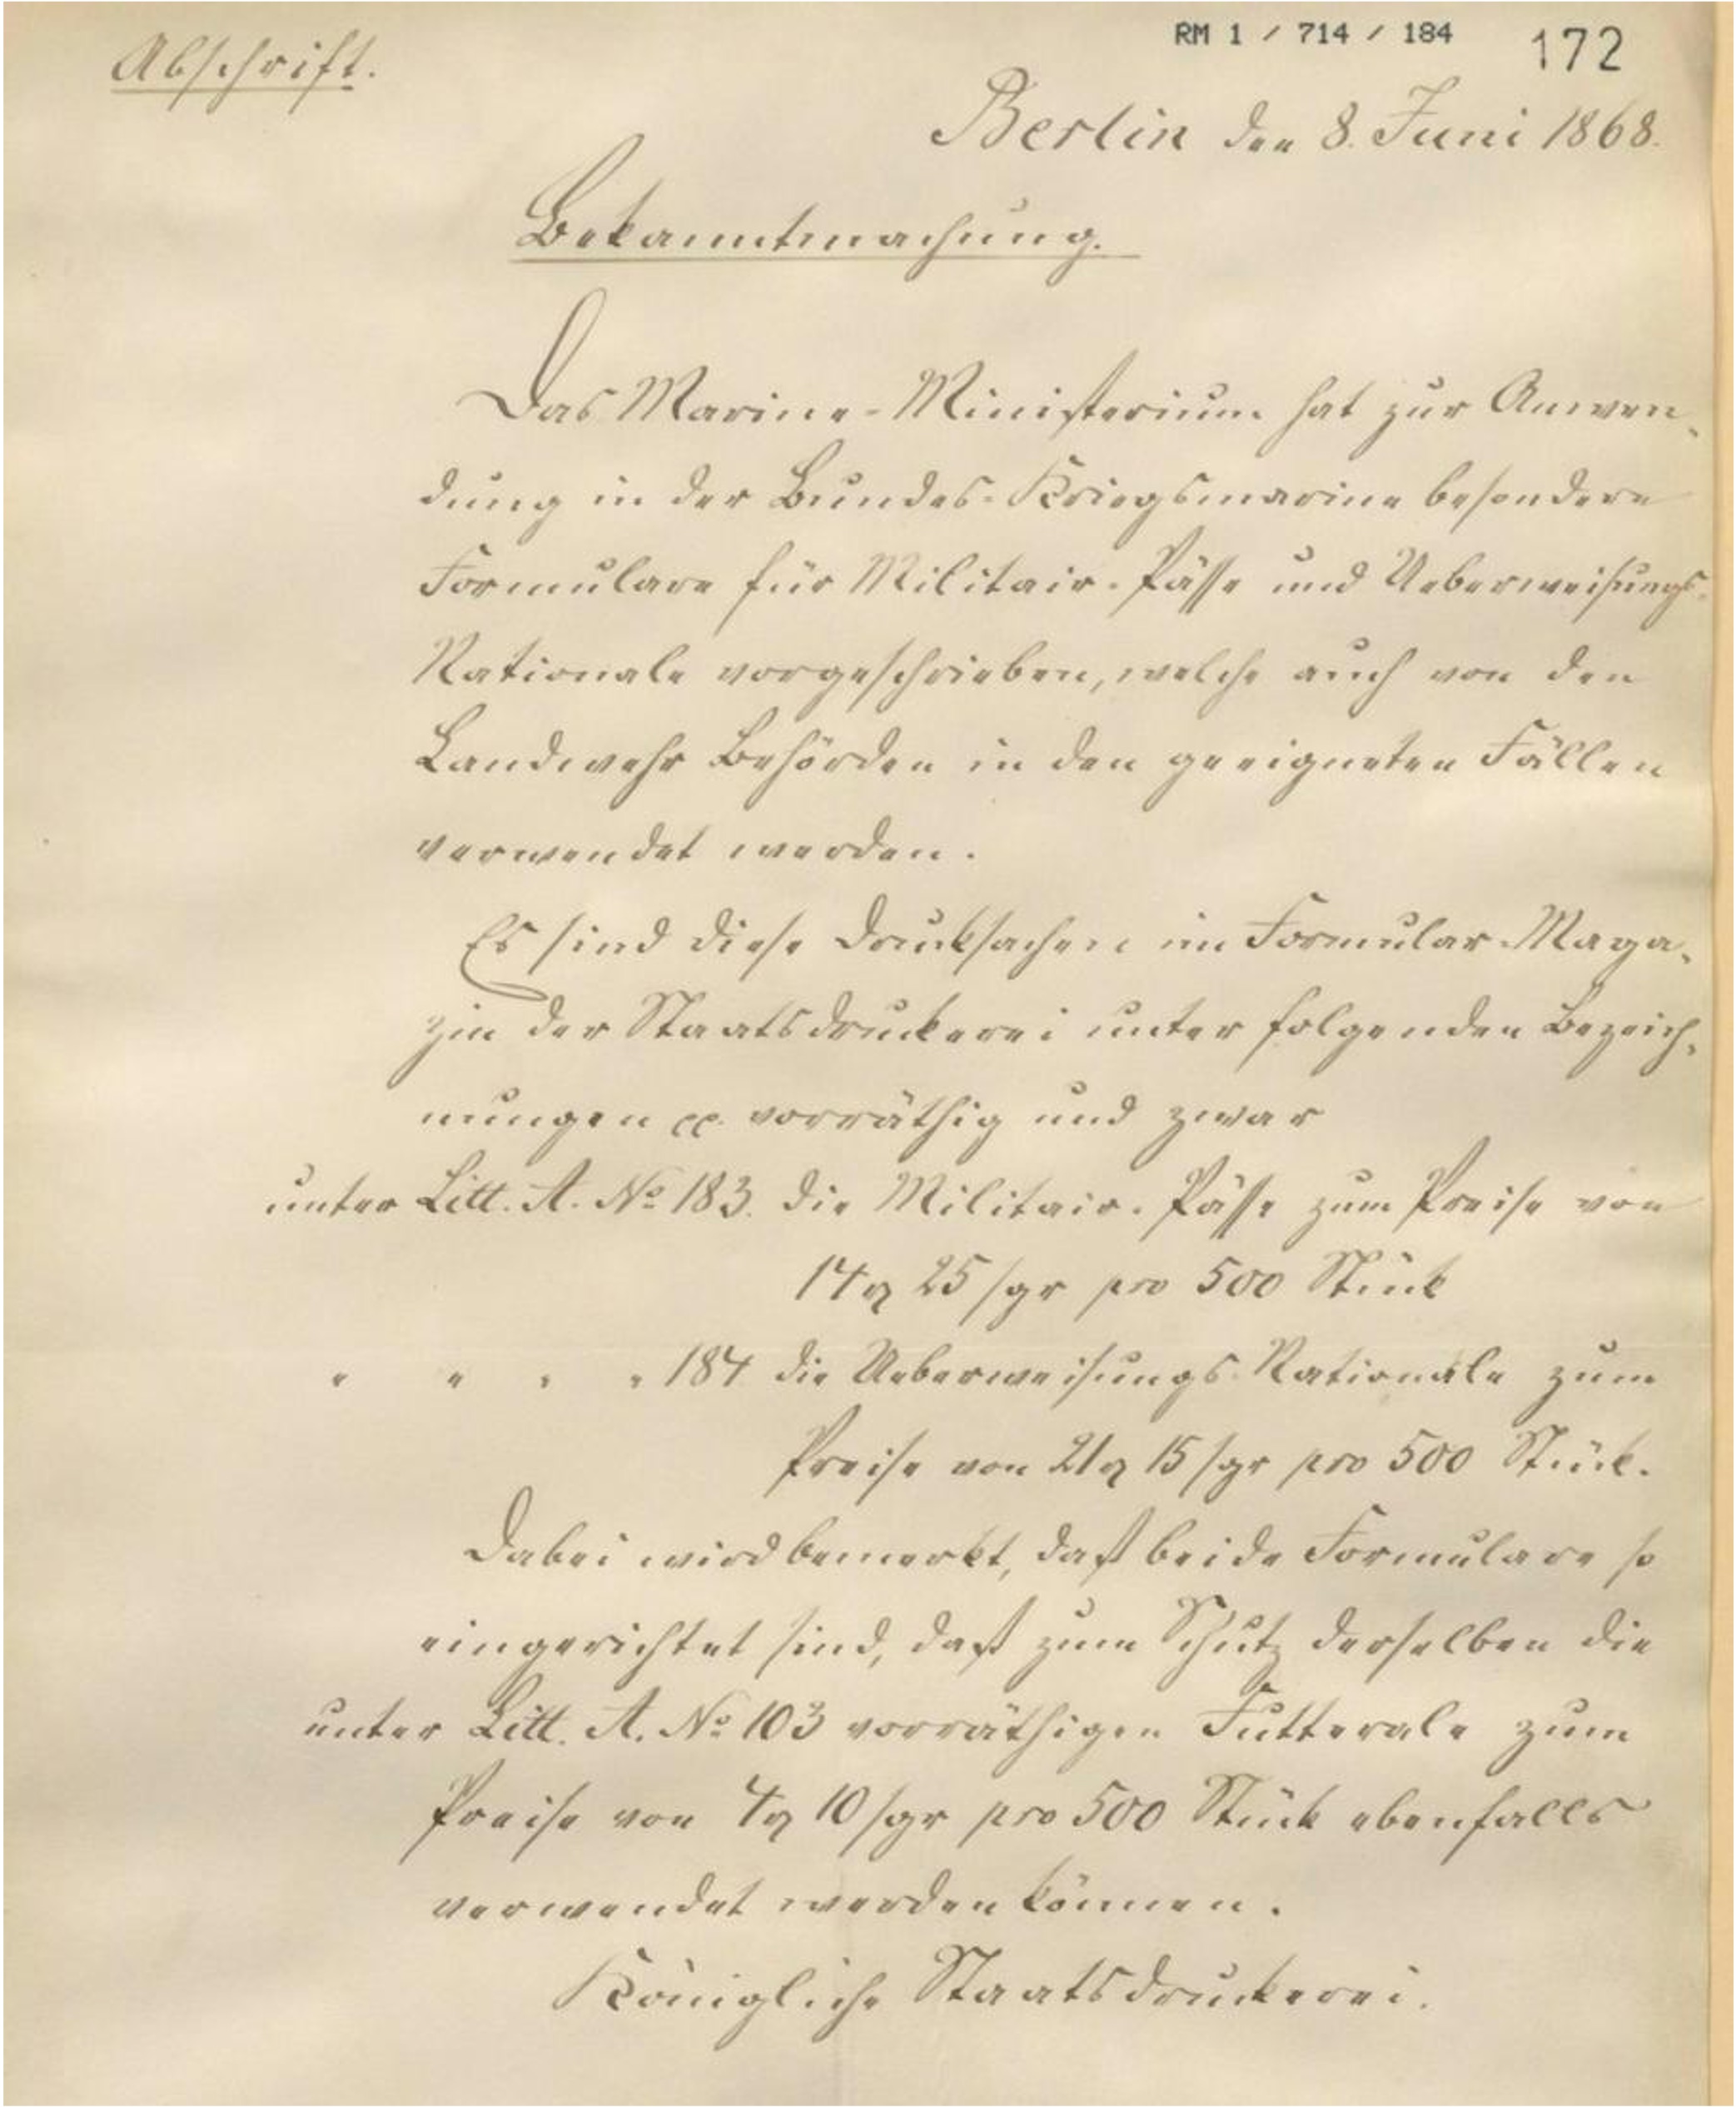 Abschrift.
RM 1 / 714 / 184
172
Berlin den 8. Juni 1868.
Bekanntmachung.
Das Marine-Ministerium hat zur Anwen-
dung in der Bundes-Kriegsmarine besondere
Formulare für Militair-Pässe und Ueberweisungs-
Nationale vorgeschrieben, welche auch von den
Landwehr Behörden in den geeigneten Fällen
verwendet werden.
Es sind diese Drucksachen im Formular-Maga-
zin der Staatsdruckerei unter folgenden Bezeich-
nungen pp. vorräthig und zwar
unter Litt. A. No 183. die Militair-Pässe zum Preise von
14 rt 25 sgr pro 500 Stück
" " " " 184 die Ueberweisungs-Nationale zum
Preise von 21 rt 15 sgr pro 500 Stück.
Dabei wird bemerkt, daß beide Formulare so
eingerichtet sind, daß zum Schutz derselben die
unter Litt. A. No 103 vorräthigen Futterale zum
Preise von 4 rt 10 sgr pro 500 Stück ebenfalls
verwendet werden können.
Königliche Staatsdruckerei.